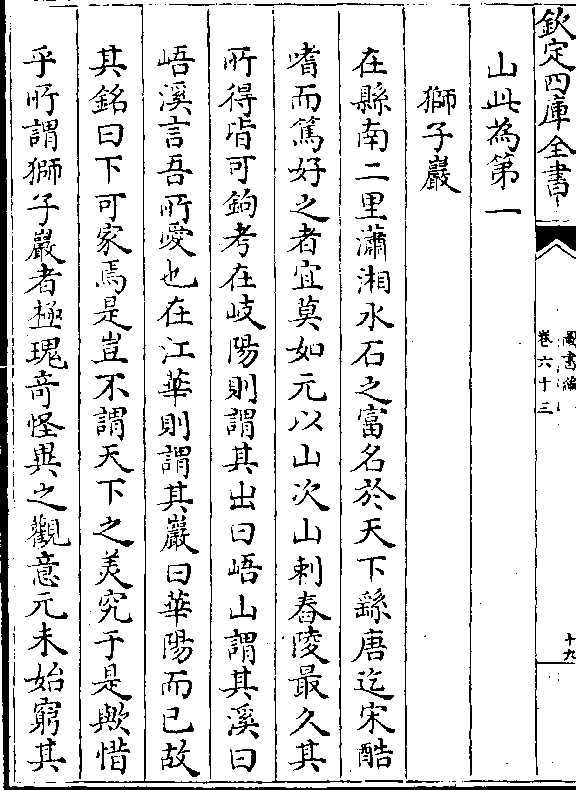 欽定四庫全書
圖書編
卷六十三
十九
山此為第一
獅子巖
在縣南二里瀟湘水石之富名於天下繇唐迄宋酷
嗜而篤好之者宜莫如元以山次山刺舂陵最久其
所得皆可鉤考在岐陽則謂其出曰峿山謂其溪曰
峿溪言吾所愛也在江華則謂其巖曰華陽而已故
其銘曰下可家焉是豈不謂天下之羙究于是歟惜
乎所謂獅子巖者極瑰奇怪異之觀意元未始窮其